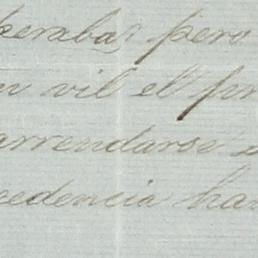 peraba, pero
n vil el pr
arrendarse
cedencia ha